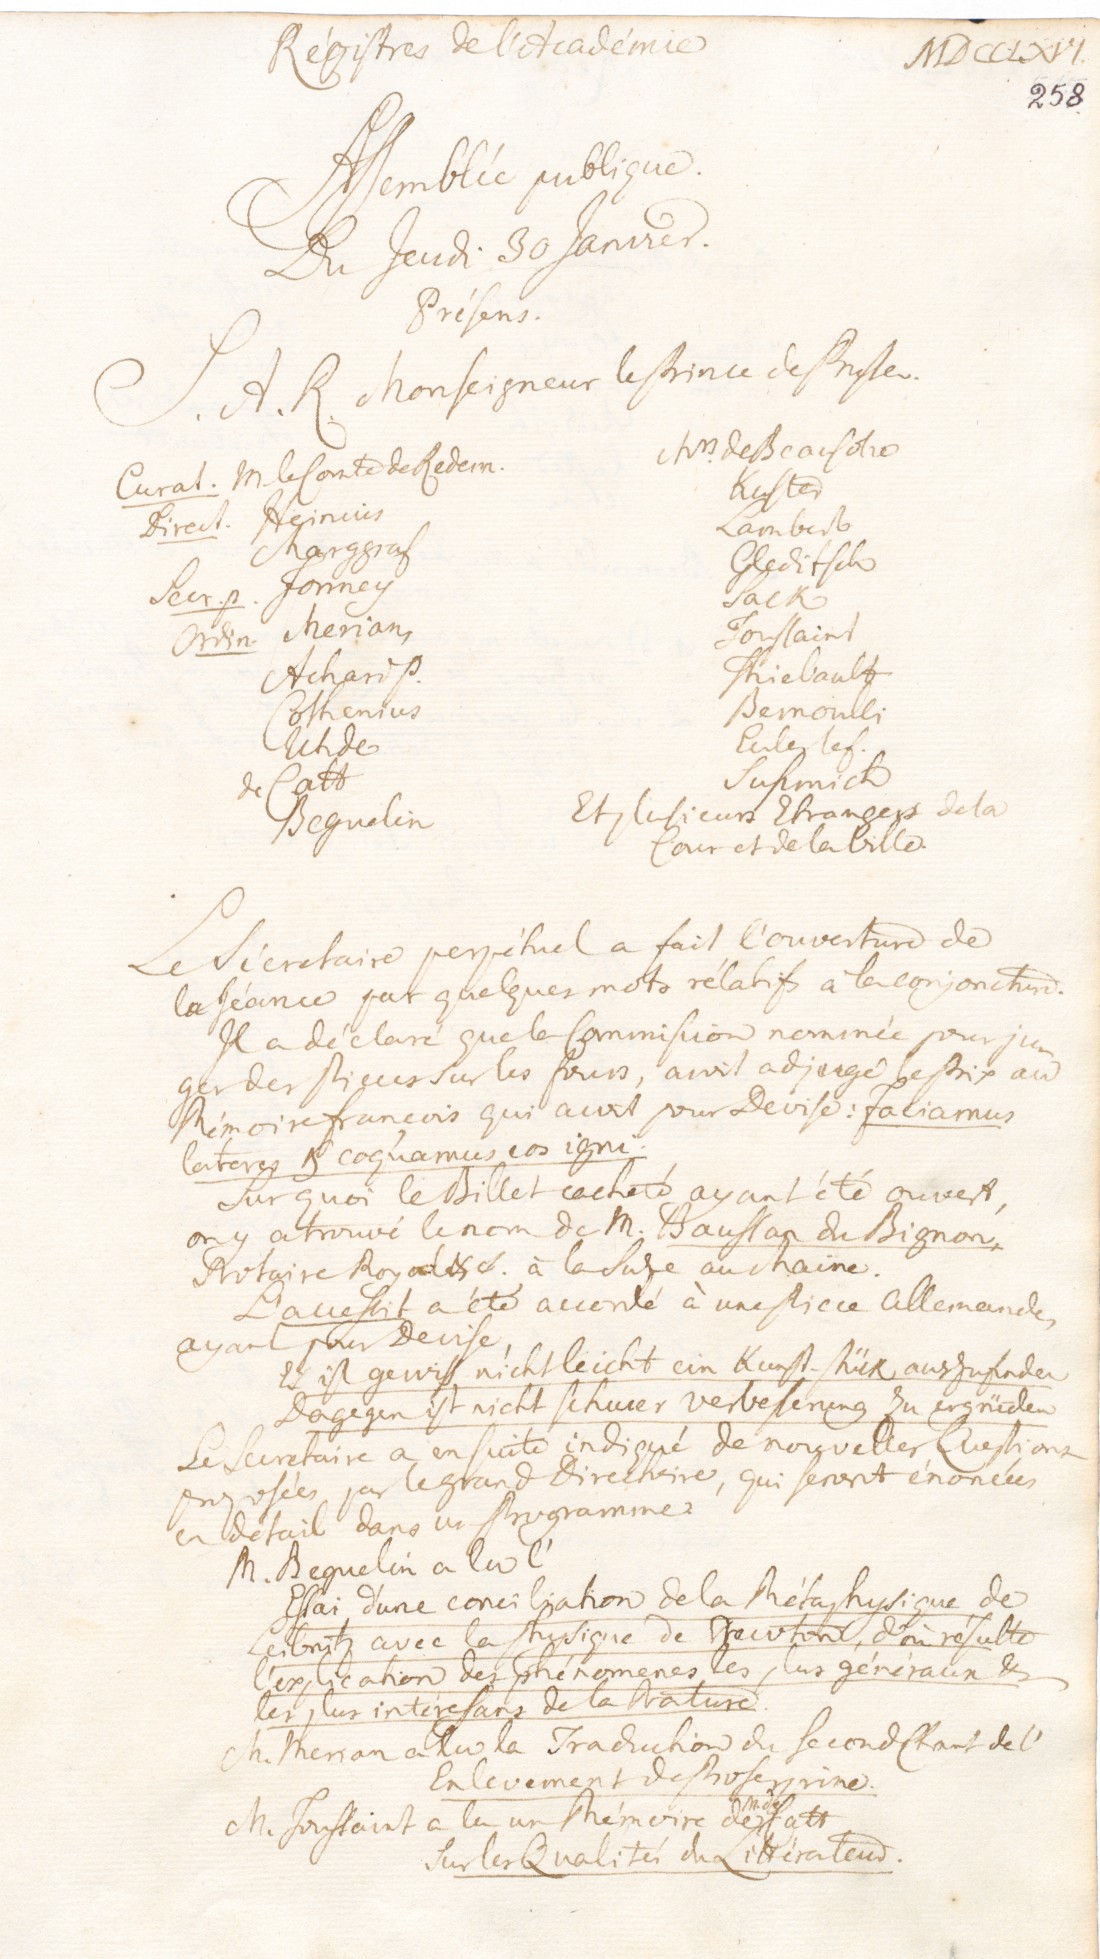 Régistres de l'Académie
MDCCLXVI.
258
Assemblée publique.
Du Jeudi 30 Janvier.
Présens.
S. A. R. Monseigneur le Prince de Prusse.
Curat. M. le Comte de Redern.
Direct. Heinius
Marggraf
Secr. p. Formey
Ordin. Merian,
Achard p.
Cothenius
Uhde
de Catt
Beguelin
Mrs. de Beausobre
Kuster
Lambert
Gleditsch
Sack
Toussaint
Thiebault
Bernoulli
Euler le f.
Susmilch
Et plusieurs Etrangers de la
Cour et de la Ville.
Le Sécretaire perpétuel a fait l'ouverture de
la Séance par quelques mots rélatifs à la conjoncture.
Il a déclaré que la Commission nommée pour ju-
ger des Pieces sur les fours, avoit adjugé le Prix au
Mémoire françois qui avoit pour Devise: faciamus
lateres & coquamus eos igni.
Sur quoi le Billet cacheté ayant été ouvert,
on y a trouvé le nom de M. du Bignon,
Notaire Royal &c. à la Suze au Maine.
L'accessit a été accordé à une Piece Allemande,
ayant pour Devise,
Es ist gewis nicht leicht ein Kunst-stük auszufinden
Dagegen ist nicht schwer verbesserung zu ergründen
Le Secretaire a ensuite indiqué de nouvelles Questions
proposées par le grand Directoire, qui seront énoncées
en détail dans un Programme.
M. Beguelin a lu l'
Essai d'une conciliation de la Métaphysique de
Leibnitz avec la Physique de Newton, d'où résulte
l'explication des phénomenes les plus généraux &
les plus intéressans de la Nature.
M. Merian a lu la Traduction du second Chant de l'
Enlevement de Proserpine.
M. Toussaint a lu un Mémoire de M. de Catt
Sur les Qualités du Littérateur.